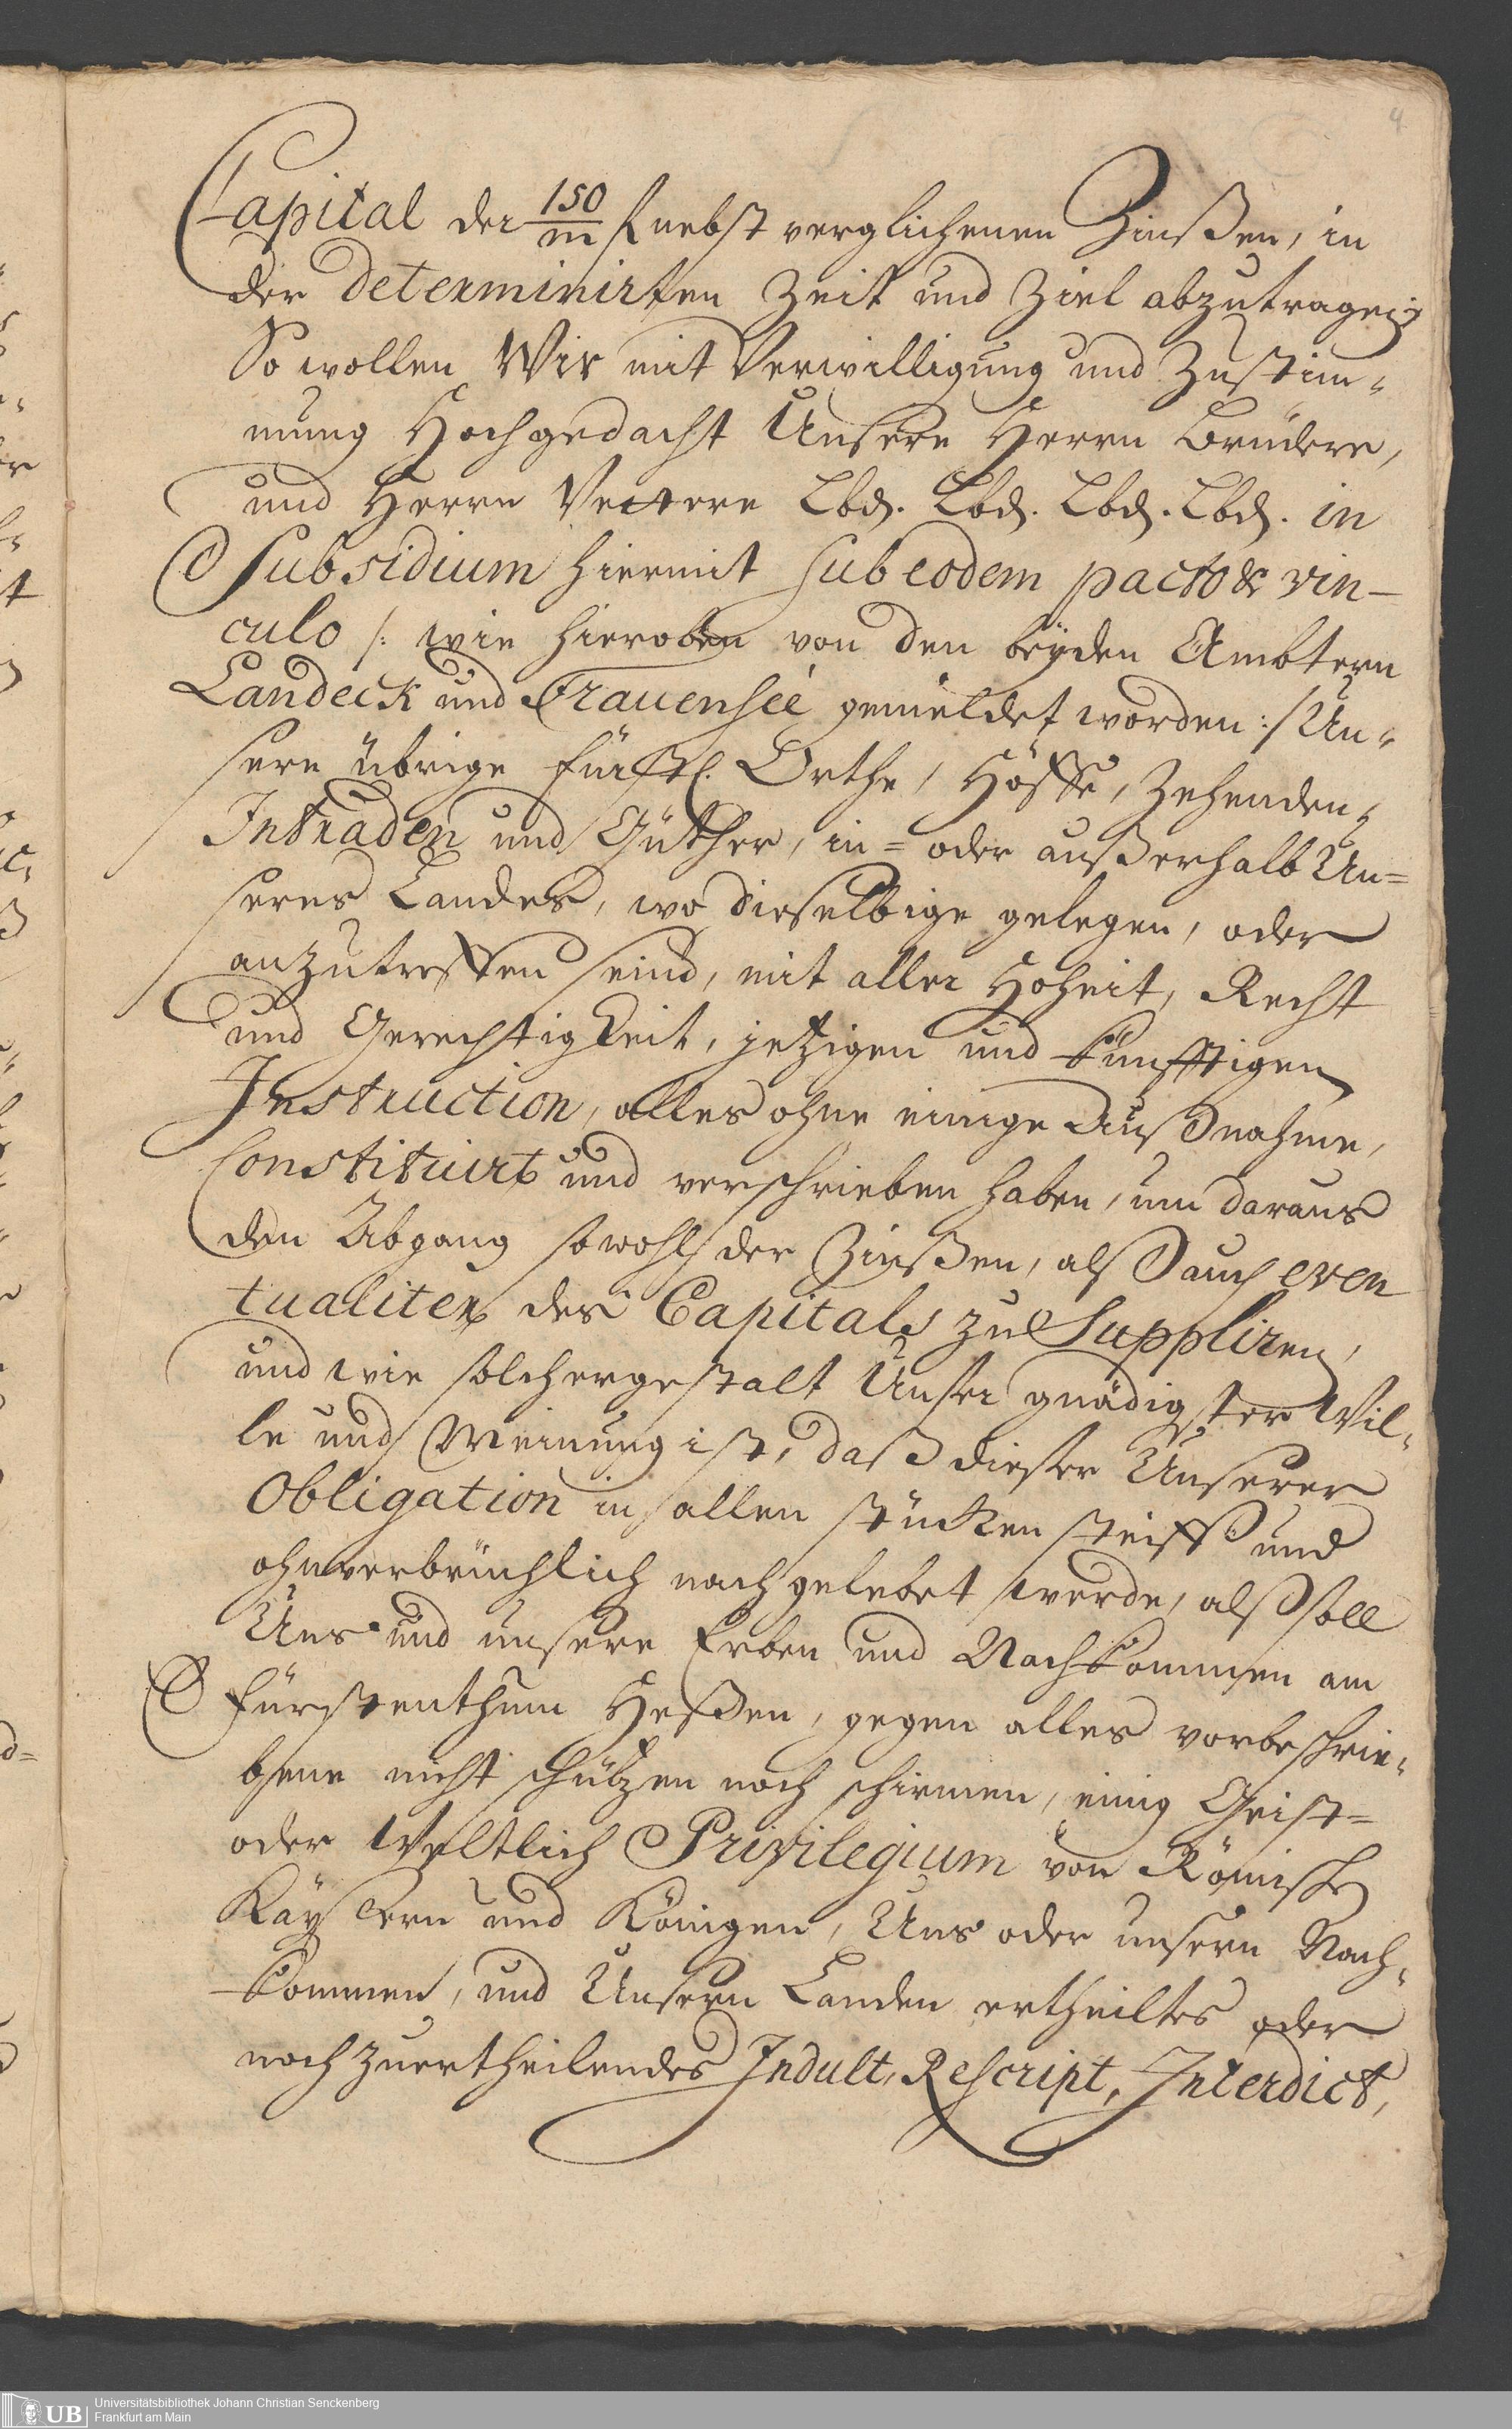 4
Capital der 150/m f nebst verglichenen Zinßen, in
der determinirten Zeit und Ziel abzutragen;
So wollen Wir mit Verwilligung und Zustim-
mung Hochgedacht Unsere Herrn Brüdere,
und Herrn Vettere Lbd. Lbd. Lbd. Lbd. in
Subsidium hiermit sub eodem pacto & vin-
culo /: wie hieroben von den beyden Ambtern
Landeck und Frauensee gemeldet worden :/ Un-
sere übrige fürstl. Orthe, Höffe, Zehenden,
Intraden und Güther, in- oder außerhalb Un-
seres Landes, wo dieselbige gelegen, oder
anzutreffen seind, mit aller Hoheit, Recht
und Gerechtigkeit, jetzigen und künfftigen
Instruction, alles ohne einige Außnahme,
Constituirt und verschrieben haben, um daraus
den Abgang sowohl der Zinßen, alß auch even
tualiter des Capitals zu Suppliren,
und wie solchergestalt Unser gnädigster Wil-
le und Meinung ist, daß dieser Unserer
Obligation in allen stücken steiff und
ohnverbrüchlich nachgelebet werde, alß soll
Uns und unsere Erben und Nachkommen am
Fürstenthum Heßen, gegen alles vorbeschrie-
bene nicht schützen noch schirmen, einig Geist-
oder Weltlich Privilegium von Römische
Käysern und Königen, Uns oder unsern Nach-
kommen, und Unsern Landen ertheiltes oder
noch zuertheilendes Indult, Rescript, Interdict,
UB
Universitätsbibliothek Johann Christian Senckenberg
Frankfurt am Main